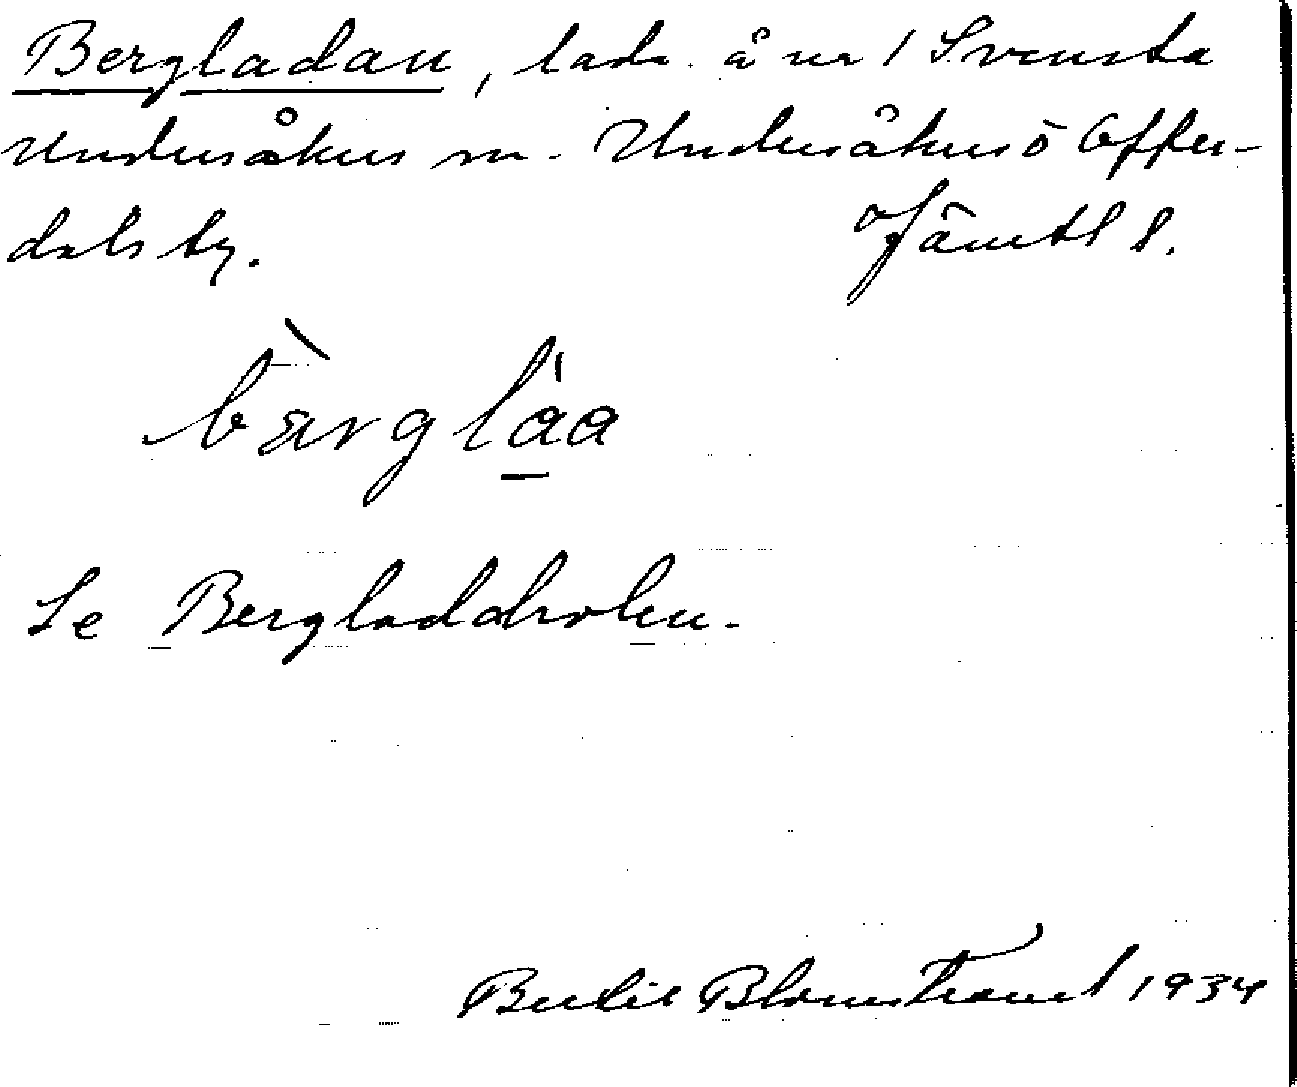 Bergladan, lada å nr 1 Svensta
Undersåkers sn. Undersåkers o Offer-
dals tg. Jämtl l.
bärglàa
Se Bergladdholen.
Bertil Blomstrand 1934